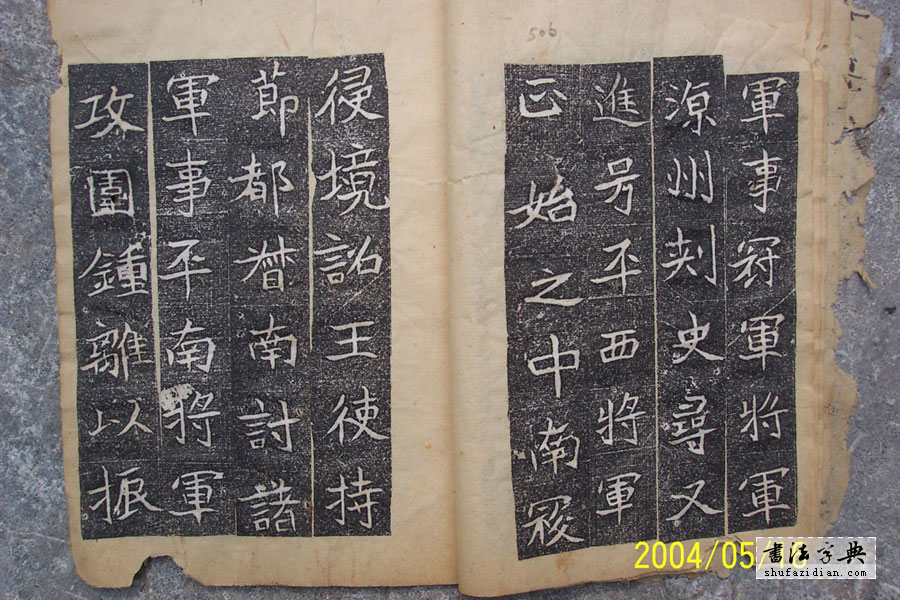 軍事冠軍將軍
涼州刾史尋又
進号平西將軍
正始之中南寇
侵境詔王使持
莭都督南討諸
軍事平南將軍
攻圍鍾離以振
506
2004/05/
書法字典
shufazidian.com